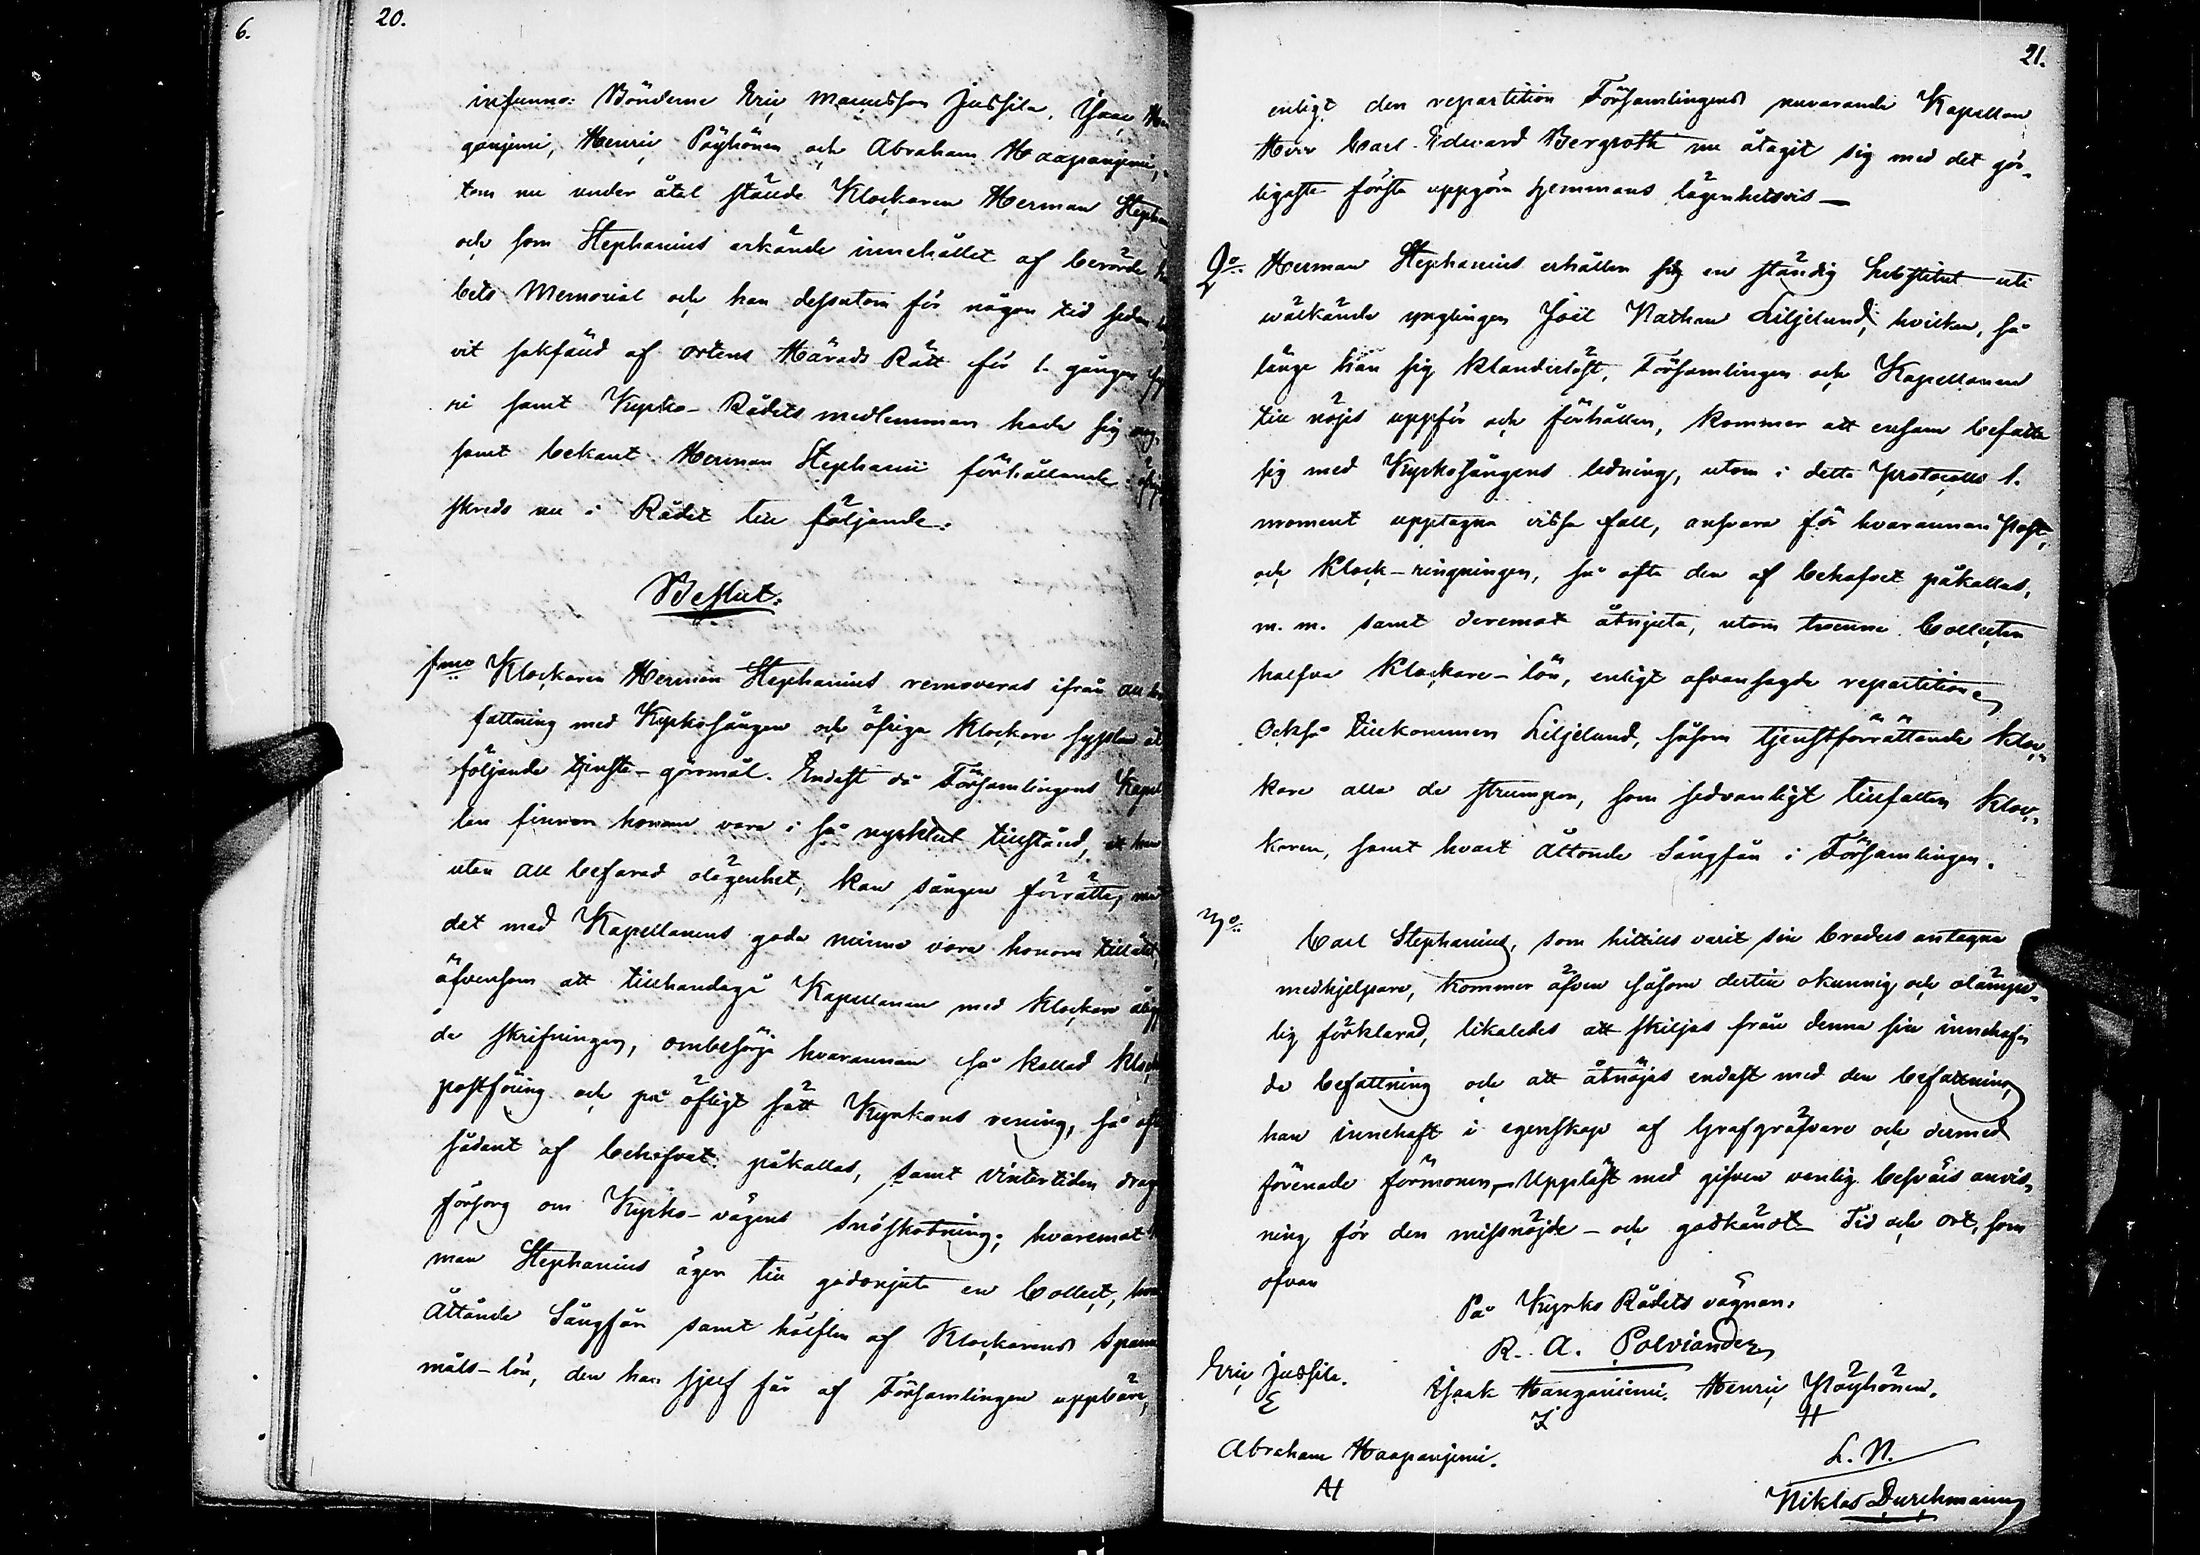 6.
20.
infunno: Bönderne Eric Manusson Jussila, Isaac
ganjemi, Henric Pöyhönen och Abraham Haapanjemi,
tom nu under åtal stånde Klockaren Herman Steph
och som Stephanius erkände innehållet af berörde
bets Memorial och han dessutom för någon tid sedan
vit sakfäld af ortens Härads Rätt för 1. gången
ri samt Kyrko-Rådets medlemmar hade sig nog
samt bekant Herman Stephanii förhållande:
skreds nu i Rådet till följande:
Beslut:
1mo Klockaren Herman Stephanius removeras ifrån all
fattning med Kyrkosången och öfriga Klockare syslan åt
följande tjenste-göromål. Endast då Församlingens Kapel
lan finner honom vara i så nycktert tillstånd, att han
utan all befarad olägenhet, kan sången förrätta, må
det med Kapellanens goda minne vara honom tillåtit,
äfvensom att tillhandagå Kapellanen med Klockare ålig
de skrifningen, ombesörja hvarannan så kallad Klock
postföring och på öfligt sätt Kyrkans rening, så oft
sådant af behofvet påkallas, samt vintertiden drag
försorg om Kyrko-vägens snöskotning; hvaremot
man Stephanius äger till godonjuta en Collect, hvar
Åttånde Sångfån samt hälften af Klockarens Spann
måls-lön, den han sjelf får af Församlingen uppbära,
21.
enligt den repartition Församlingens nuvarande Kapellan
Herr Carl Edvard Bergroth nu åtagit sig med det gör-
ligaste första uppgöra hemmans lägenhetsvis—
2o: Herman Stephanius erhåller sig en ständig Substitut uti
wälkände ynglingen Joël Nathan Liljelund, hvilken, så
länge han sig klanderlöst, Församlingen och Kapellanen
till nöjes uppför och förhåller, kommer att ensam befatta
sig med Kyrkosångens ledning, utom i detta Protocolls 1.
moment upptagna vissa fall, ansvara för hvarannan Post,
och Klock-ringningen, så ofta den af behofvet påkallas,
m. m. samt deremot åtnjuta, utom tvenne Collecten
halfva Klockare-lön, enligt ofvansagde repartition.
Också tillkommer Liljelund, såsom tjenstförrättande Kloc-
kare alla de strumpor, som sedvanligt tillfaller Kloc-
karen, samt hvart Åttonde Sångfån i Församlingen.
3o: Carl Stephanius, som hittills varit sin broders antagna
medhjelpare, kommer äfven såsom dertill okunnig och olämpe-
lig förklarad, likaledes att skiljas från denna sin innehaf-
de befattning och att åtnöjas endast med den befattning
han innehaft i egenskap af Grafgräfvare och dermed
förenade förmoner,—Uppläst med gifven venlig besvärs anvis-
ning för den missnöjde - och godkändt Tid och ort, som
ofvan
På Kyrko Rådets vägnar:
R. A. Polviander
Eric Jussila. Isaak Hanganiemi. Henric Pöyhönen.
E I H
Abraham Haapanjemi. L. N.
AH Niklas Durchmann